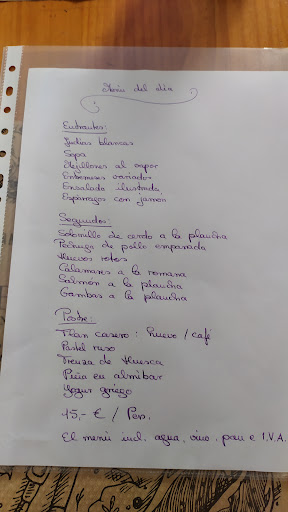 Menú del día
Entrantes:
Judías blancas
Sopa
Mejillones al vapor
Entremeses variados
Ensalada ilustrada
Espárragos con jamón
Segundos:
Solomillo de cerdo a la plancha
Pechuga de pollo empanada
Huevos rotos
Calamares a la romana
Salmón a la plancha
Gambas a la plancha
Postre:
Flan casero: huevo / café
Pastel ruso
Trenza de Huesca
Piña en almíbar
Yogur griego
15,- € / Pers.
El menú incl. agua, vino, pan e I.V.A.